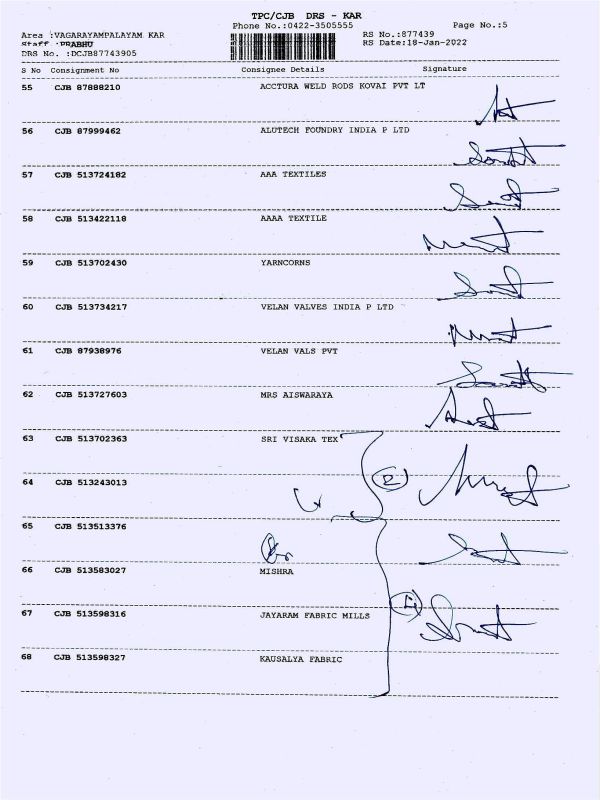 TPC/CJB DRS - KAR
Phone No.:0422-3505555 Page No.:5
Area :VAGARAYAMPALAYAM KAR RS No.:877439
Staff :PRABHU RS Date:18-Jan-2022
DRS No. :DCJB87743905
S No Consignment No Consignee Details Signature
55 CJB 87888210 ACCTURA WELD RODS KOVAI PVT LT
56 CJB 87999462 ALUTECH FOUNDRY INDIA P LTD
57 CJB 513724182 AAA TEXTILES
58 CJB 513422118 AAAA TEXTILE
59 CJB 513702430 YARNCORNS
60 CJB 513734217 VELAN VALVES INDIA P LTD
61 CJB 87938976 VELAN VALS PVT
62 CJB 513727603 MRS AISWARAYA
63 CJB 513702363 SRI VISAKA TEX
64 CJB 513243013
65 CJB 513513376
66 CJB 513583027 MISHRA
67 CJB 513598316 JAYARAM FABRIC MILLS
68 CJB 513598327 KAUSALYA FABRIC